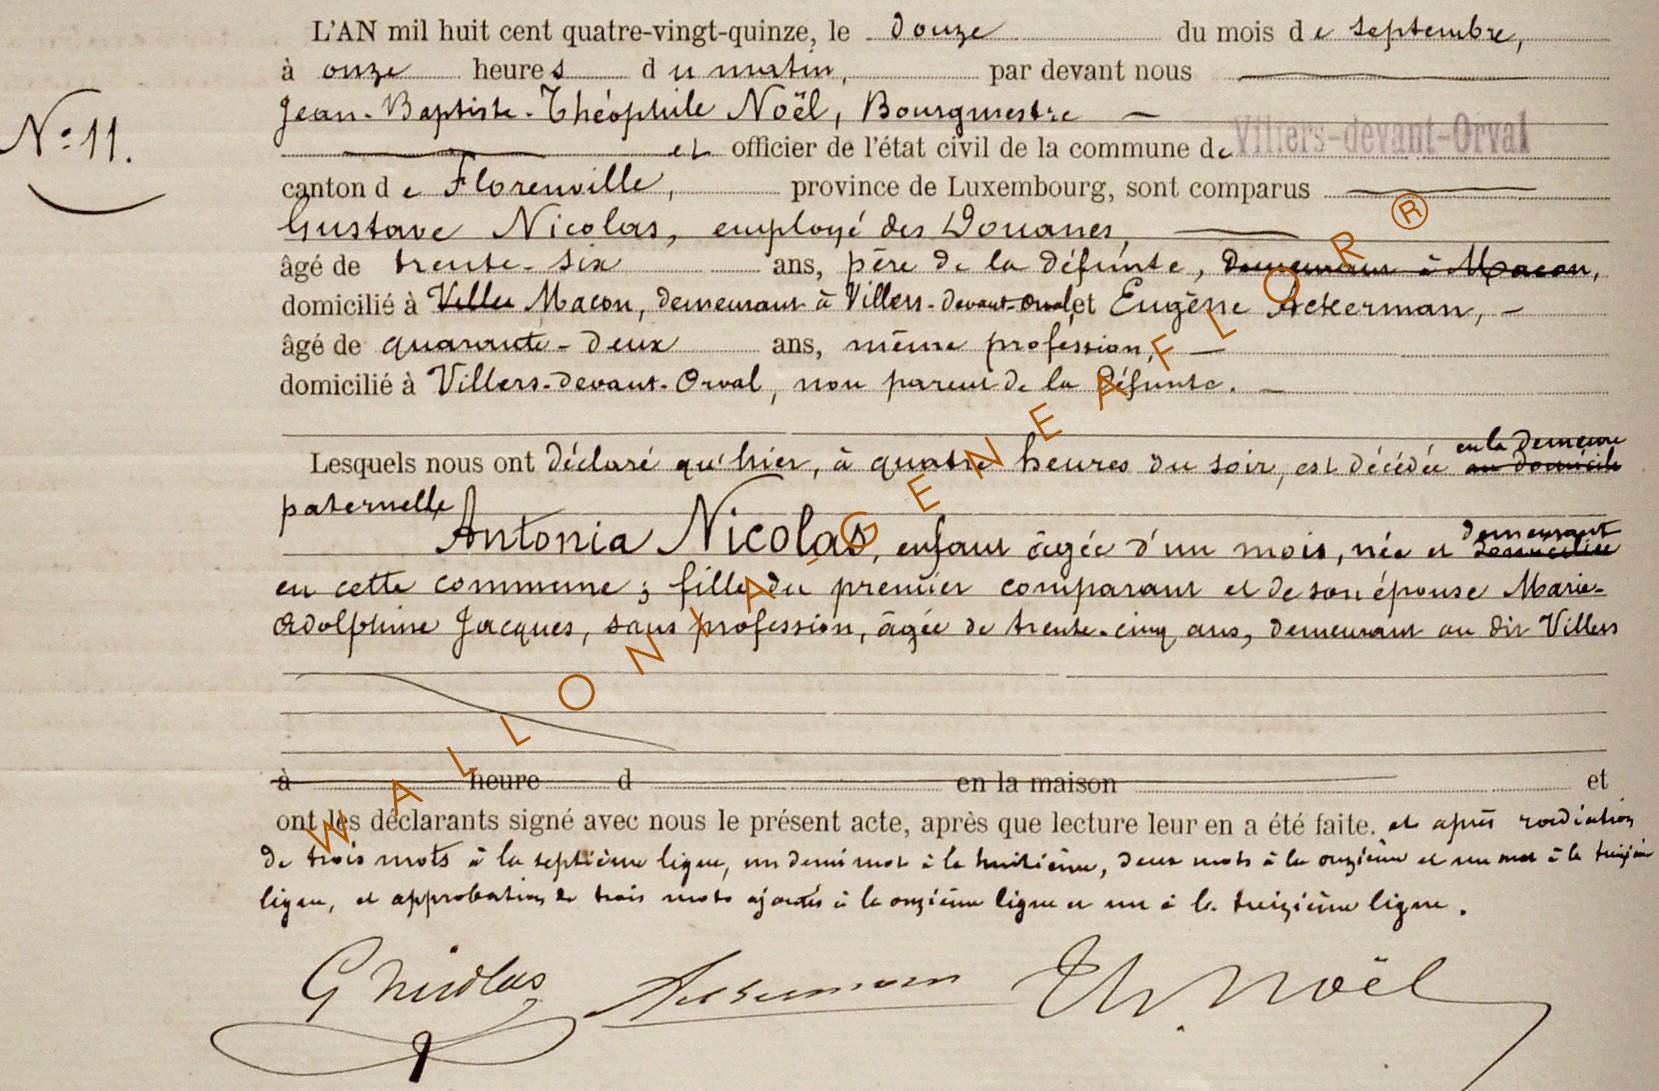 L'AN mil huit cent quatre-vingt-quinze, le douze du mois de septembre,
à onze heures du matin, par devant nous
Jean-Baptiste-Théophile Noël, Bourgmestre
et officier de l'état civil de la commune de Villers-devant-Orval
N° 11.
canton de Florenville, province de Luxembourg, sont comparus
Gustave Nicolas, employé des Douanes,
âgé de trente-six ans, père de la défunte, demeurant à Macon,
domicilié à Villes Macon, demeurant à Villers-devant-Orval, et Eugène Ackerman,
âgé de quarante-deux ans, même profession,
domicilié à Villers-devant-Orval, non parent de la défunte.
Lesquels nous ont déclaré qu'hier, à quatre heures du soir, est décédée au domicile en la demeure
paternelle
Antonia Nicolas, enfant âgée d'un mois, née et domiciliée demeurant
en cette commune ; fille du premier comparant et de son épouse Marie-
Adolphine Jacques, sans profession, âgée de trente-cinq ans, demeurant au dit Villers
à heure d en la maison et
ont les déclarants signé avec nous le présent acte, après que lecture leur en a été faite. et après radiation
de trois mots à la septième ligne, un demi mot à la huitième, deux mots à la onzième et un mot à la treizième
ligne, et approbation de trois mots ajoutés à la onzième ligne et un à la treizième ligne.
G Nicolas Ackerman Th. Noël
WALLONIA-GENEAFLOR ®